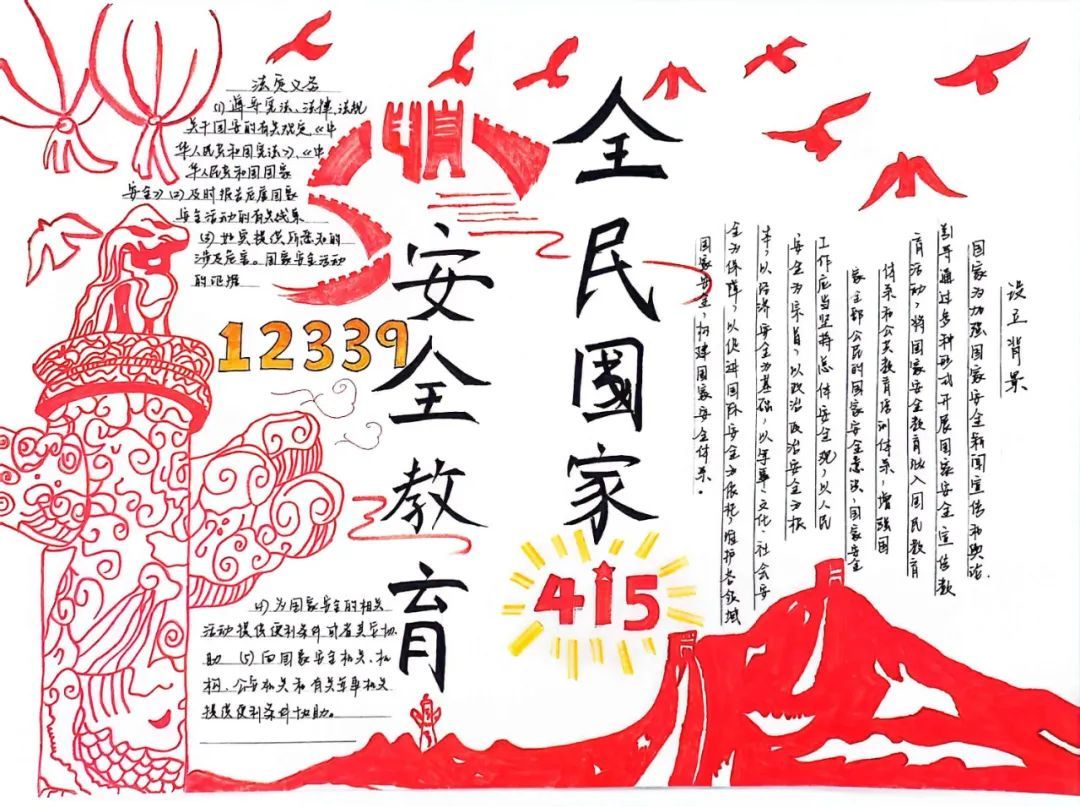 全民國家
安全教育
法定义务
(1) 遵守宪法、法律、法规
关于国安的有关规定《中
华人民共和国宪法》、《中
华人民共和国国家
安全》(2)及时报告危害国家
安全活动的有关线索
(3) 如实提供所悉知的
涉及危害。国家安全活动
的证据
12339
415
(4) 为国家安全的相关
活动提供便利条件或者其它协
助 (5) 向国家安全机关、机
构、公安机关和有关军事机关
提供便利条件协助。
设立背景
国家为加强国家安全新闻宣传和舆论.
引导通过多种形式开展国家安全宣传教
育活动,将国家安全教育纳入国民教育
体系和公务教育培训体系,增强国
家公民的国家安全意识,国家安全
工作应当坚持总体安全观,以人民
安全为宗旨,以政治政治安全为根
本,以经济安全为基础,以军事、文化、社会安
全为保障,以促进国际安全为依托,维护各领域
国家安全,构建国家安全体系。